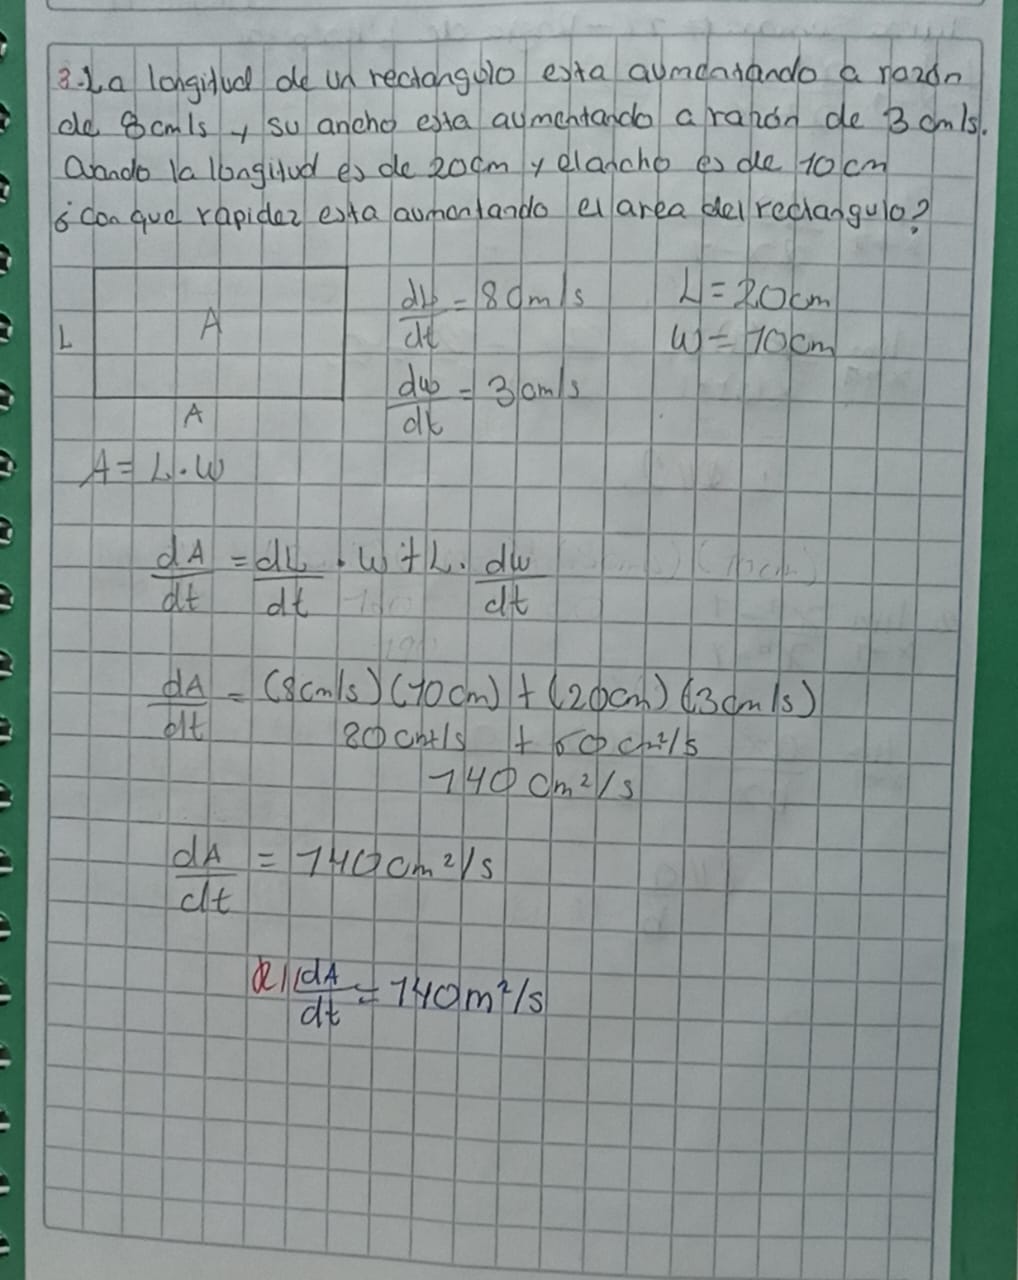 3.La longitud de un rectangulo esta aumentando a razón
de 8cm/s y su ancho esta aumentando a razón de 3 cm/s.
Cuando la longitud es de 20cm y el ancho es de 10 cm
¿con que rapidez esta aumentando el area del rectangulo?
A
L
A
dL/dt = 8 cm/s
L = 20cm
W = 10cm
dw/dt = 3 cm/s
A = L.W
dA/dt = dL/dt . W + L. dw/dt
dA/dt = (8cm/s)(10cm) + (20cm)(3cm/s)
80cm²/s + 60cm²/s
140 cm²/s
dA/dt = 140cm²/s
R// dA/dt = 140m²/s